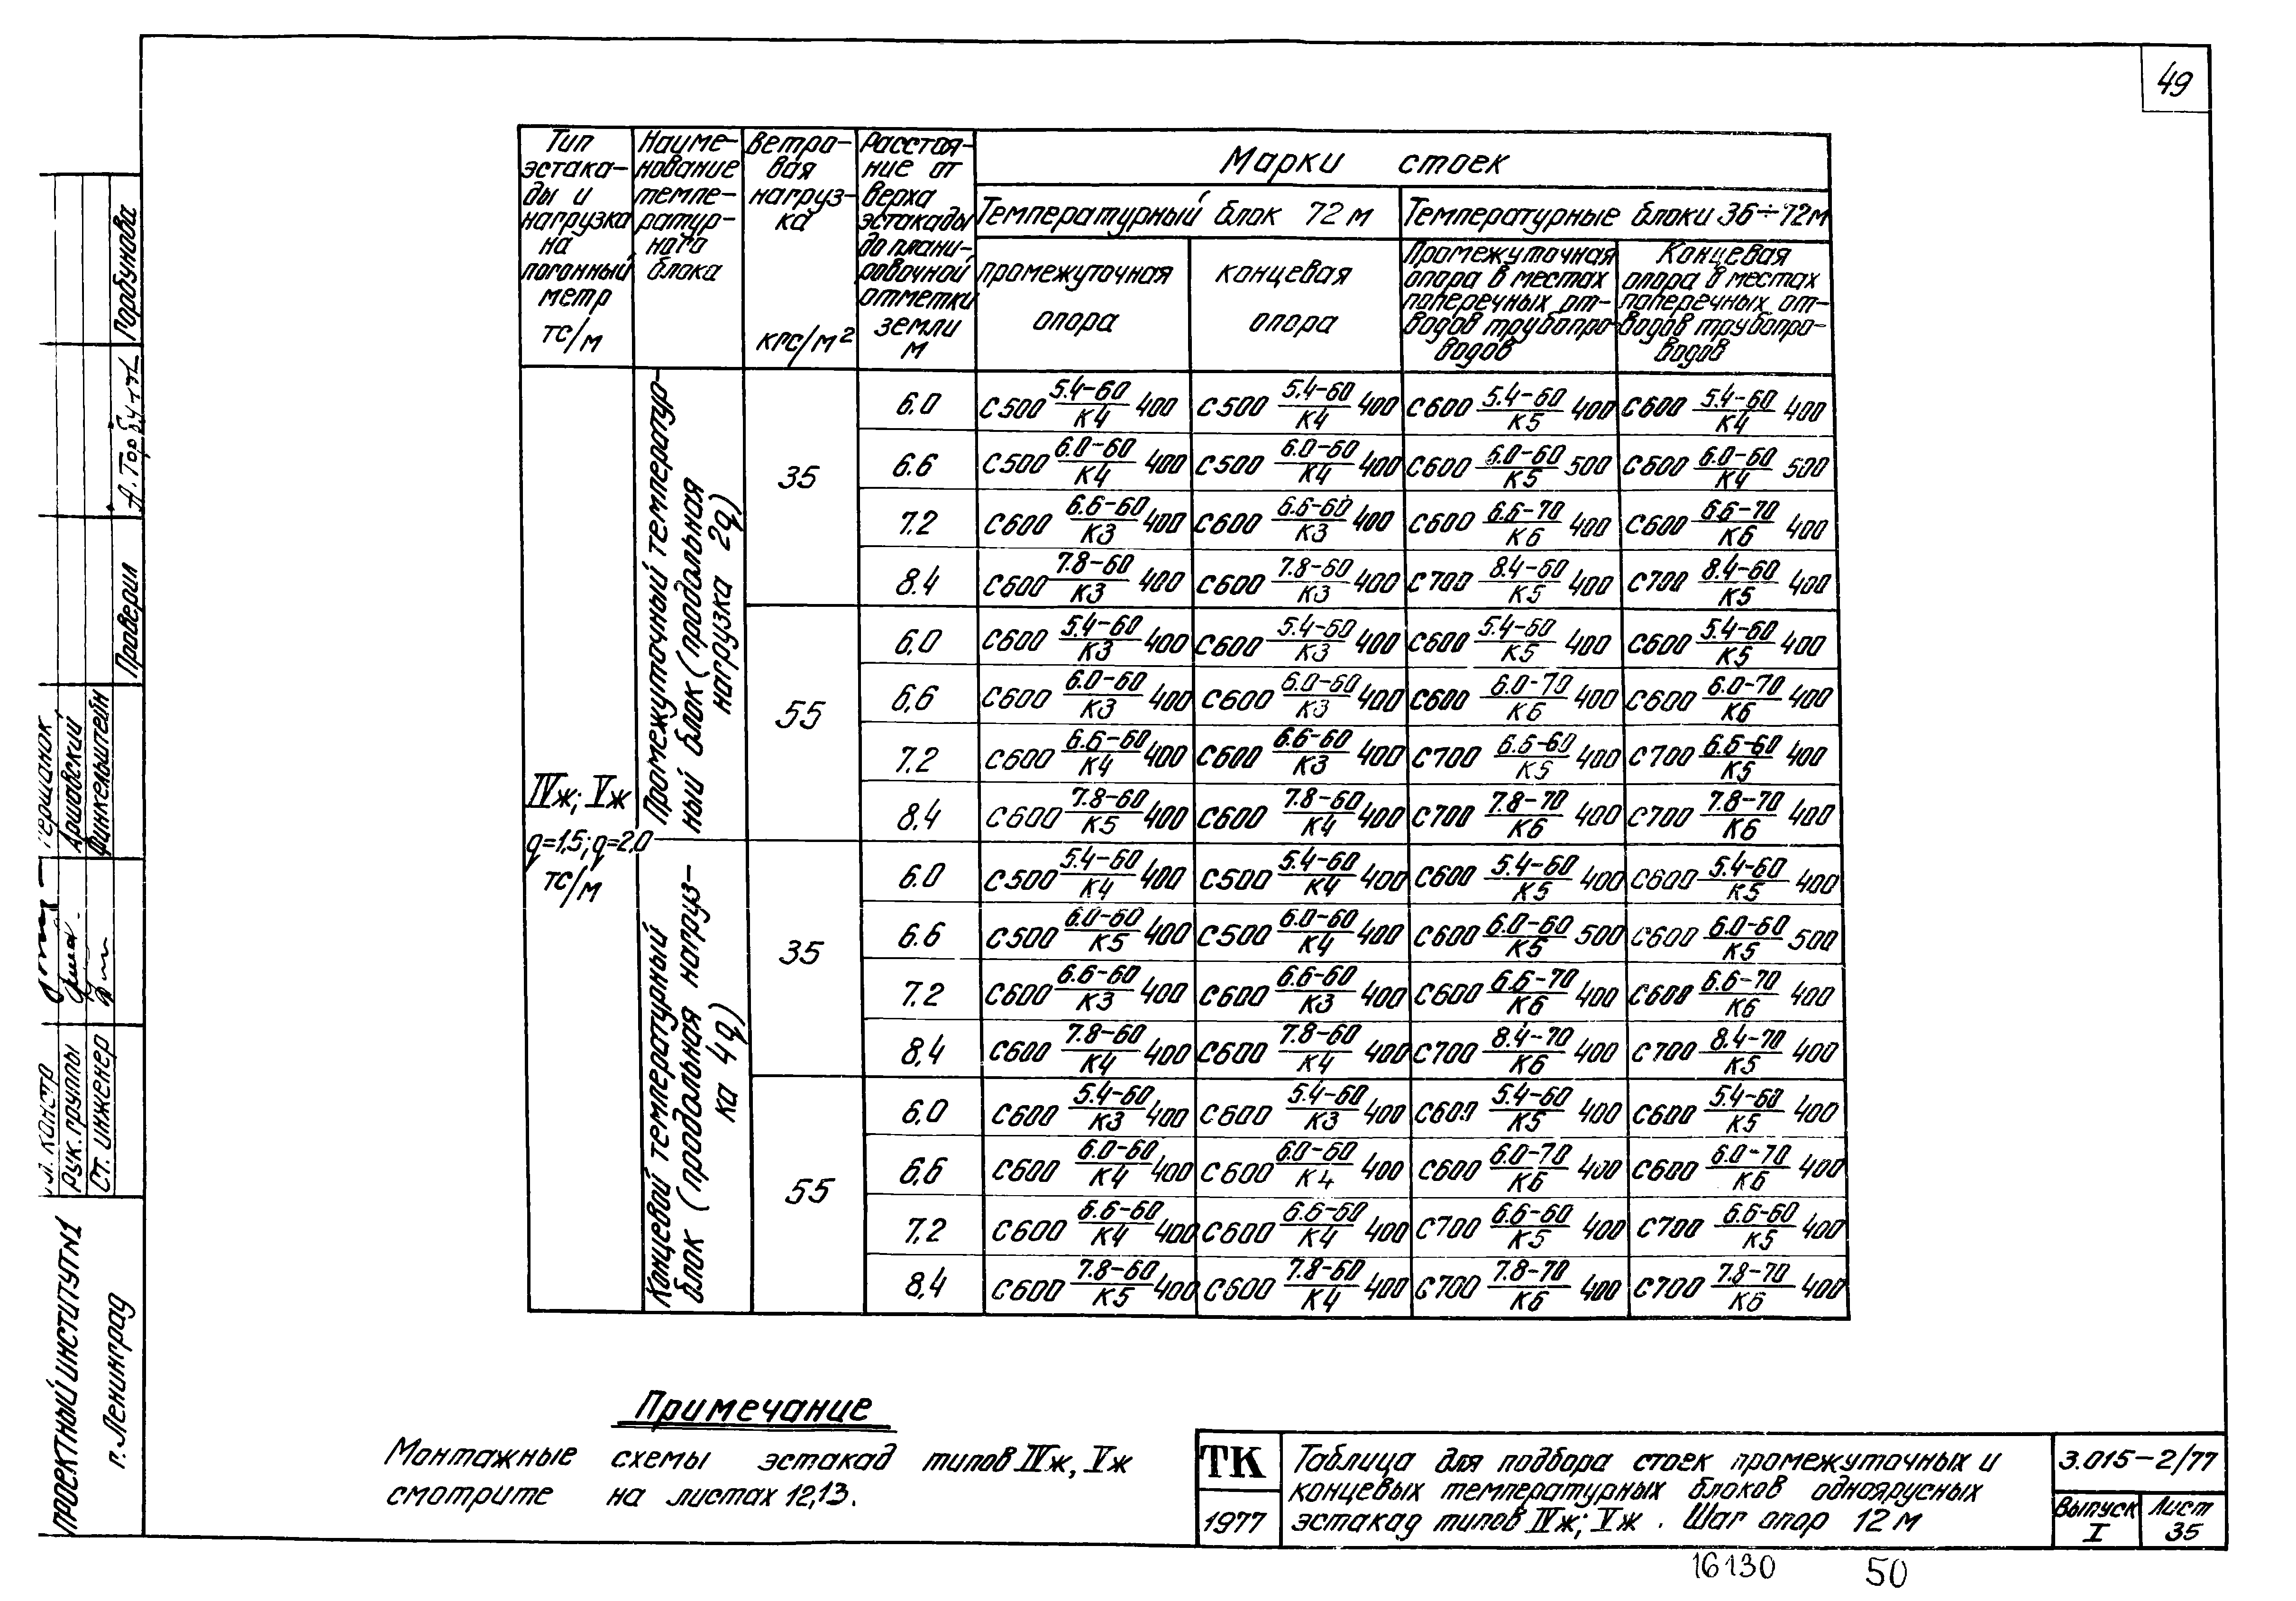 49
Тип эстакады и нагрузка на погонный метр тс/м
Наименование температурного блока
Ветровая нагрузка кгс/м²
Расстояние от верха эстакады до планировочной отметки земли м
Марки стоек
Температурный блок 72 м
Температурные блоки 36÷72м
промежуточная опора
концевая опора
Промежуточная опора в местах поперечных отводов трубопроводов
Концевая опора в местах поперечных отводов трубопроводов
IVж; Vж
q=1,5; q=2,0
тс/м
Промежуточный температурный блок (продольная нагрузка 2q)
35
6.0 С500 5.4-60/К4 400 С500 5.4-60/К4 400 С600 5.4-60/К5 400 С600 5.4-60/К4 400
6.6 С500 6.0-60/К4 400 С500 6.0-60/К4 400 С600 6.0-60/К5 500 С600 6.0-60/К4 500
7.2 С600 6.6-60/К3 400 С600 6.6-60/К3 400 С600 6.6-70/К6 400 С600 6.6-70/К6 400
8.4 С600 7.8-60/К3 400 С600 7.8-60/К3 400 С700 8.4-60/К5 400 С700 8.4-60/К5 400
55
6,0 С600 5.4-60/К3 400 С600 5.4-60/К3 400 С600 5.4-60/К5 400 С600 5.4-60/К5 400
6,6 С600 6.0-60/К3 400 С600 6.0-60/К3 400 С600 6.0-70/К6 400 С600 6.0-70/К6 400
7.2 С600 6.6-60/К4 400 С600 6.6-60/К3 400 С700 6.6-60/К5 400 С700 6.6-60/К5 400
8.4 С600 7.8-60/К5 400 С600 7.8-60/К4 400 С700 7.8-70/К6 400 С700 7.8-70/К6 400
Концевой температурный блок (продольная нагрузка 4q)
35
6.0 С500 5.4-60/К4 400 С500 5.4-60/К4 400 С600 5.4-60/К5 400 С600 5.4-60/К5 400
6.6 С500 6.0-60/К5 400 С500 6.0-60/К4 400 С600 6.0-60/К5 500 С600 6.0-60/К5 500
7.2 С600 6.6-60/К3 400 С600 6.6-60/К3 400 С600 6.6-70/К6 400 С600 6.6-70/К6 400
8,4 С600 7.8-60/К4 400 С600 7.8-60/К4 400 С700 8.4-70/К6 400 С700 8.4-70/К5 400
55
6,0 С600 5.4-60/К3 400 С600 5.4-60/К3 400 С600 5.4-60/К5 400 С600 5.4-60/К5 400
6,6 С600 6.0-60/К4 400 С600 6.0-60/К4 400 С600 6.0-70/К6 400 С600 6.0-70/К6 400
7,2 С600 6.6-60/К4 400 С600 6.6-60/К4 400 С700 6.6-60/К5 400 С700 6.6-60/К5 400
8,4 С600 7.8-60/К5 400 С600 7.8-60/К4 400 С700 7.8-70/К6 400 С700 7.8-70/К6 400
Примечание
Монтажные схемы эстакад типов IVж, Vж
смотрите на листах 12,13.
ТК
1977
Таблица для подбора стоек промежуточных и
концевых температурных блоков одноярусных
эстакад типов IVж; Vж. Шаг опор 12 м
3.015-2/77
Выпуск I
Лист 35
16130 50
Горбунова
Проверил
Аршавский
Финкельштейн
констр
Рук. группы
Ст. инженер
ПРОЕКТНЫЙ ИНСТИТУТ N1
г. Ленинград